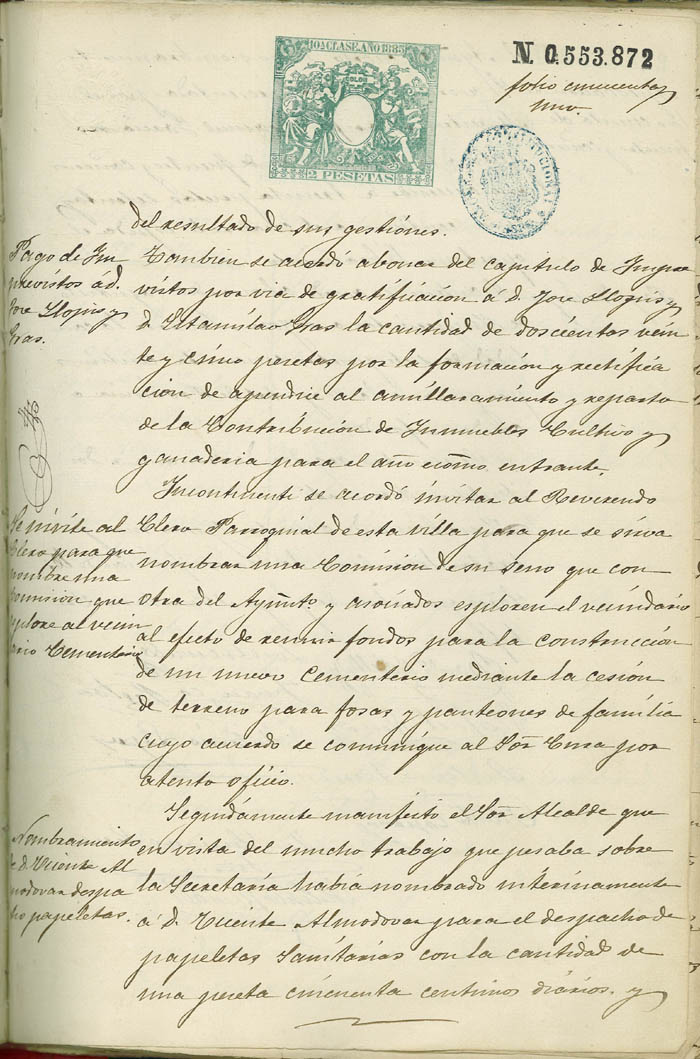 10ª CLASE. AÑO 1885
2 PESETAS
N. 0.553.872
folio cincuenta y
uno.
del resultado de sus gestiónes.
Pago de Im
previstos á d.
Jose Llopis y
Gras.
Tambien se acordó abonar del capitulo de Impre
vistos por via de gratificacion á d. Jose Llopis y
d. Estanislao Gras la cantidad de doscientas vein
te y cinco pesetas por la formación y rectifica
ción de apendice al amillaramiento y reparto
de la Contribución de Inmuebles Cultivo y
ganaderia para el año ecómo. entrante.
Se invite al
Clero para que
nombre una
comisión que
esplore al vecin
dario Cementerio
Incontinenti se acordó invitar al Reverendo
Clero Parroquial de esta villa para que se sirva
nombrar una Comisión de su seno que con
otra del Ayuntº. y asociados esploren el vecindario
al efecto de reunir fondos para la construcción
de un nuevo cementerio mediante la cesión
de terreno para fosas y panteones de família
cuyo acuerdo se comunique al Sor. Cura por
atento oficio.
Nombramiento
de d. Vicente Al
modovar despa
cho papeletas.
Seguidamente manifestó el Sor. Alcalde que
en vista del mucho trabajo que pesaba sobre
la Secretaría había nombrado interinamente
á d. Vicente Almodovar para el despacho de
papeletas Sanitárias con la cantidad de
una peseta cincuenta centimos diários. y